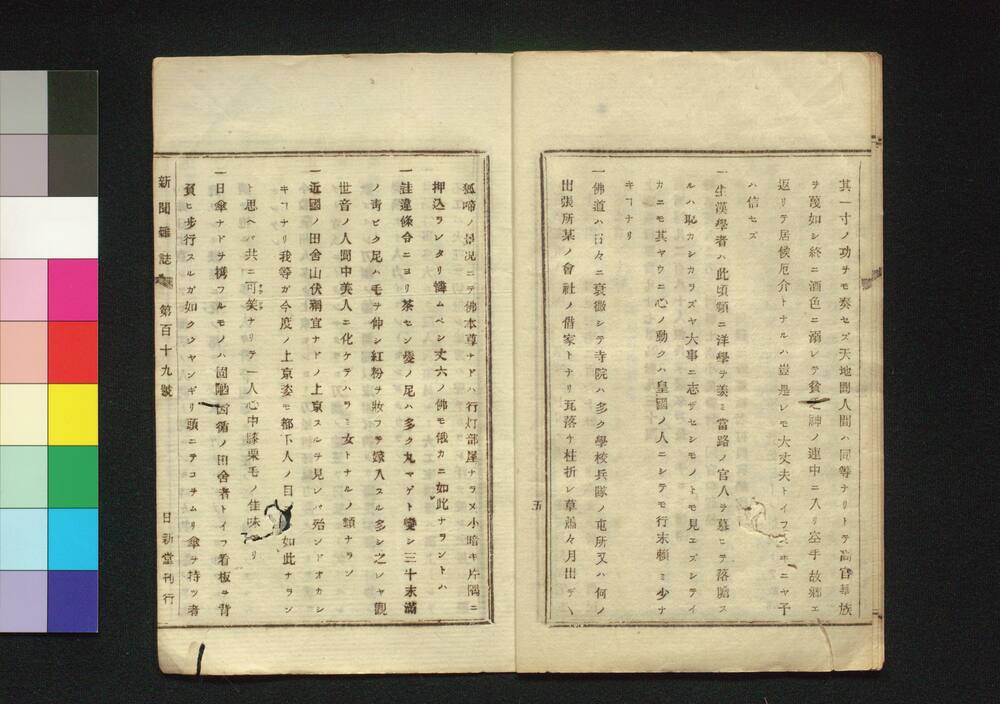 其一寸ノ功ヲモ奏セズ天地間人間ハ同等ナリトテ高官華族
ヲ蔑如シ終ニ酒色ニ溺レテ貧乏神ノ連中ニ入リ空手故郷エ
返リテ居候厄介トナルハ豈是レモ大丈夫トイフベキニヤ予
ハ信セズ
一生漢學者ハ此頃頻ニ洋學ヲ羨ミ當路ノ官人ヲ慕ヒテ落膽ス
ルハ恥カシカラズヤ大事ニ志ザセシモノトモ見エズシテイ
カニモ其ヤウニ心ノ動クハ皇國ノ人ニシテモ行末頼ミ少ナ
キヿナリ
一佛道ハ日々ニ衰微シテ寺院ハ多ク學校兵隊ノ屯所又ハ何ノ
出張所某ノ會社ノ借家トナリ瓦落ケ柱折レ草蕭々月出デヽ
五
狐啼ノ景况ニテ佛本尊ナドハ行灯部屋ナラヌ小暗キ片隅ニ
押込ラレタリ憐ムベシ丈六ノ佛モ俄カニ如此ナラントハ
一詿違條令ニヨリ茶セン髮ノ足ハ多ク丸マゲト變シ三十未滿
ノ靑ビク足ハ毛ヲ伸シ紅粉ヲ妝フテ嫁入スル多シ之レヤ觀
世音ノ人間中美人ニ化ケテハラミ女トナルノ類ナラン
一近國ノ田舍山伏禰宜ナドノ上京スルヲ見レバ殆ンドオカシ
キヿナリ我等ガ今度ノ上京姿モ都下人ノ目 如此ナラン
ト思ヘバ共ニ可笑ナリテ一人心中膝栗毛ノ佳味 リ
一日傘ナドヲ携フルモノハ固陋因循ノ田舍者トイフ看板ヲ背
負ヒ步行スルガ如クジャンギリ頭ニテコサムリ傘ヲ持ツ者
新聞雜誌 第百十九號 日新堂刊行